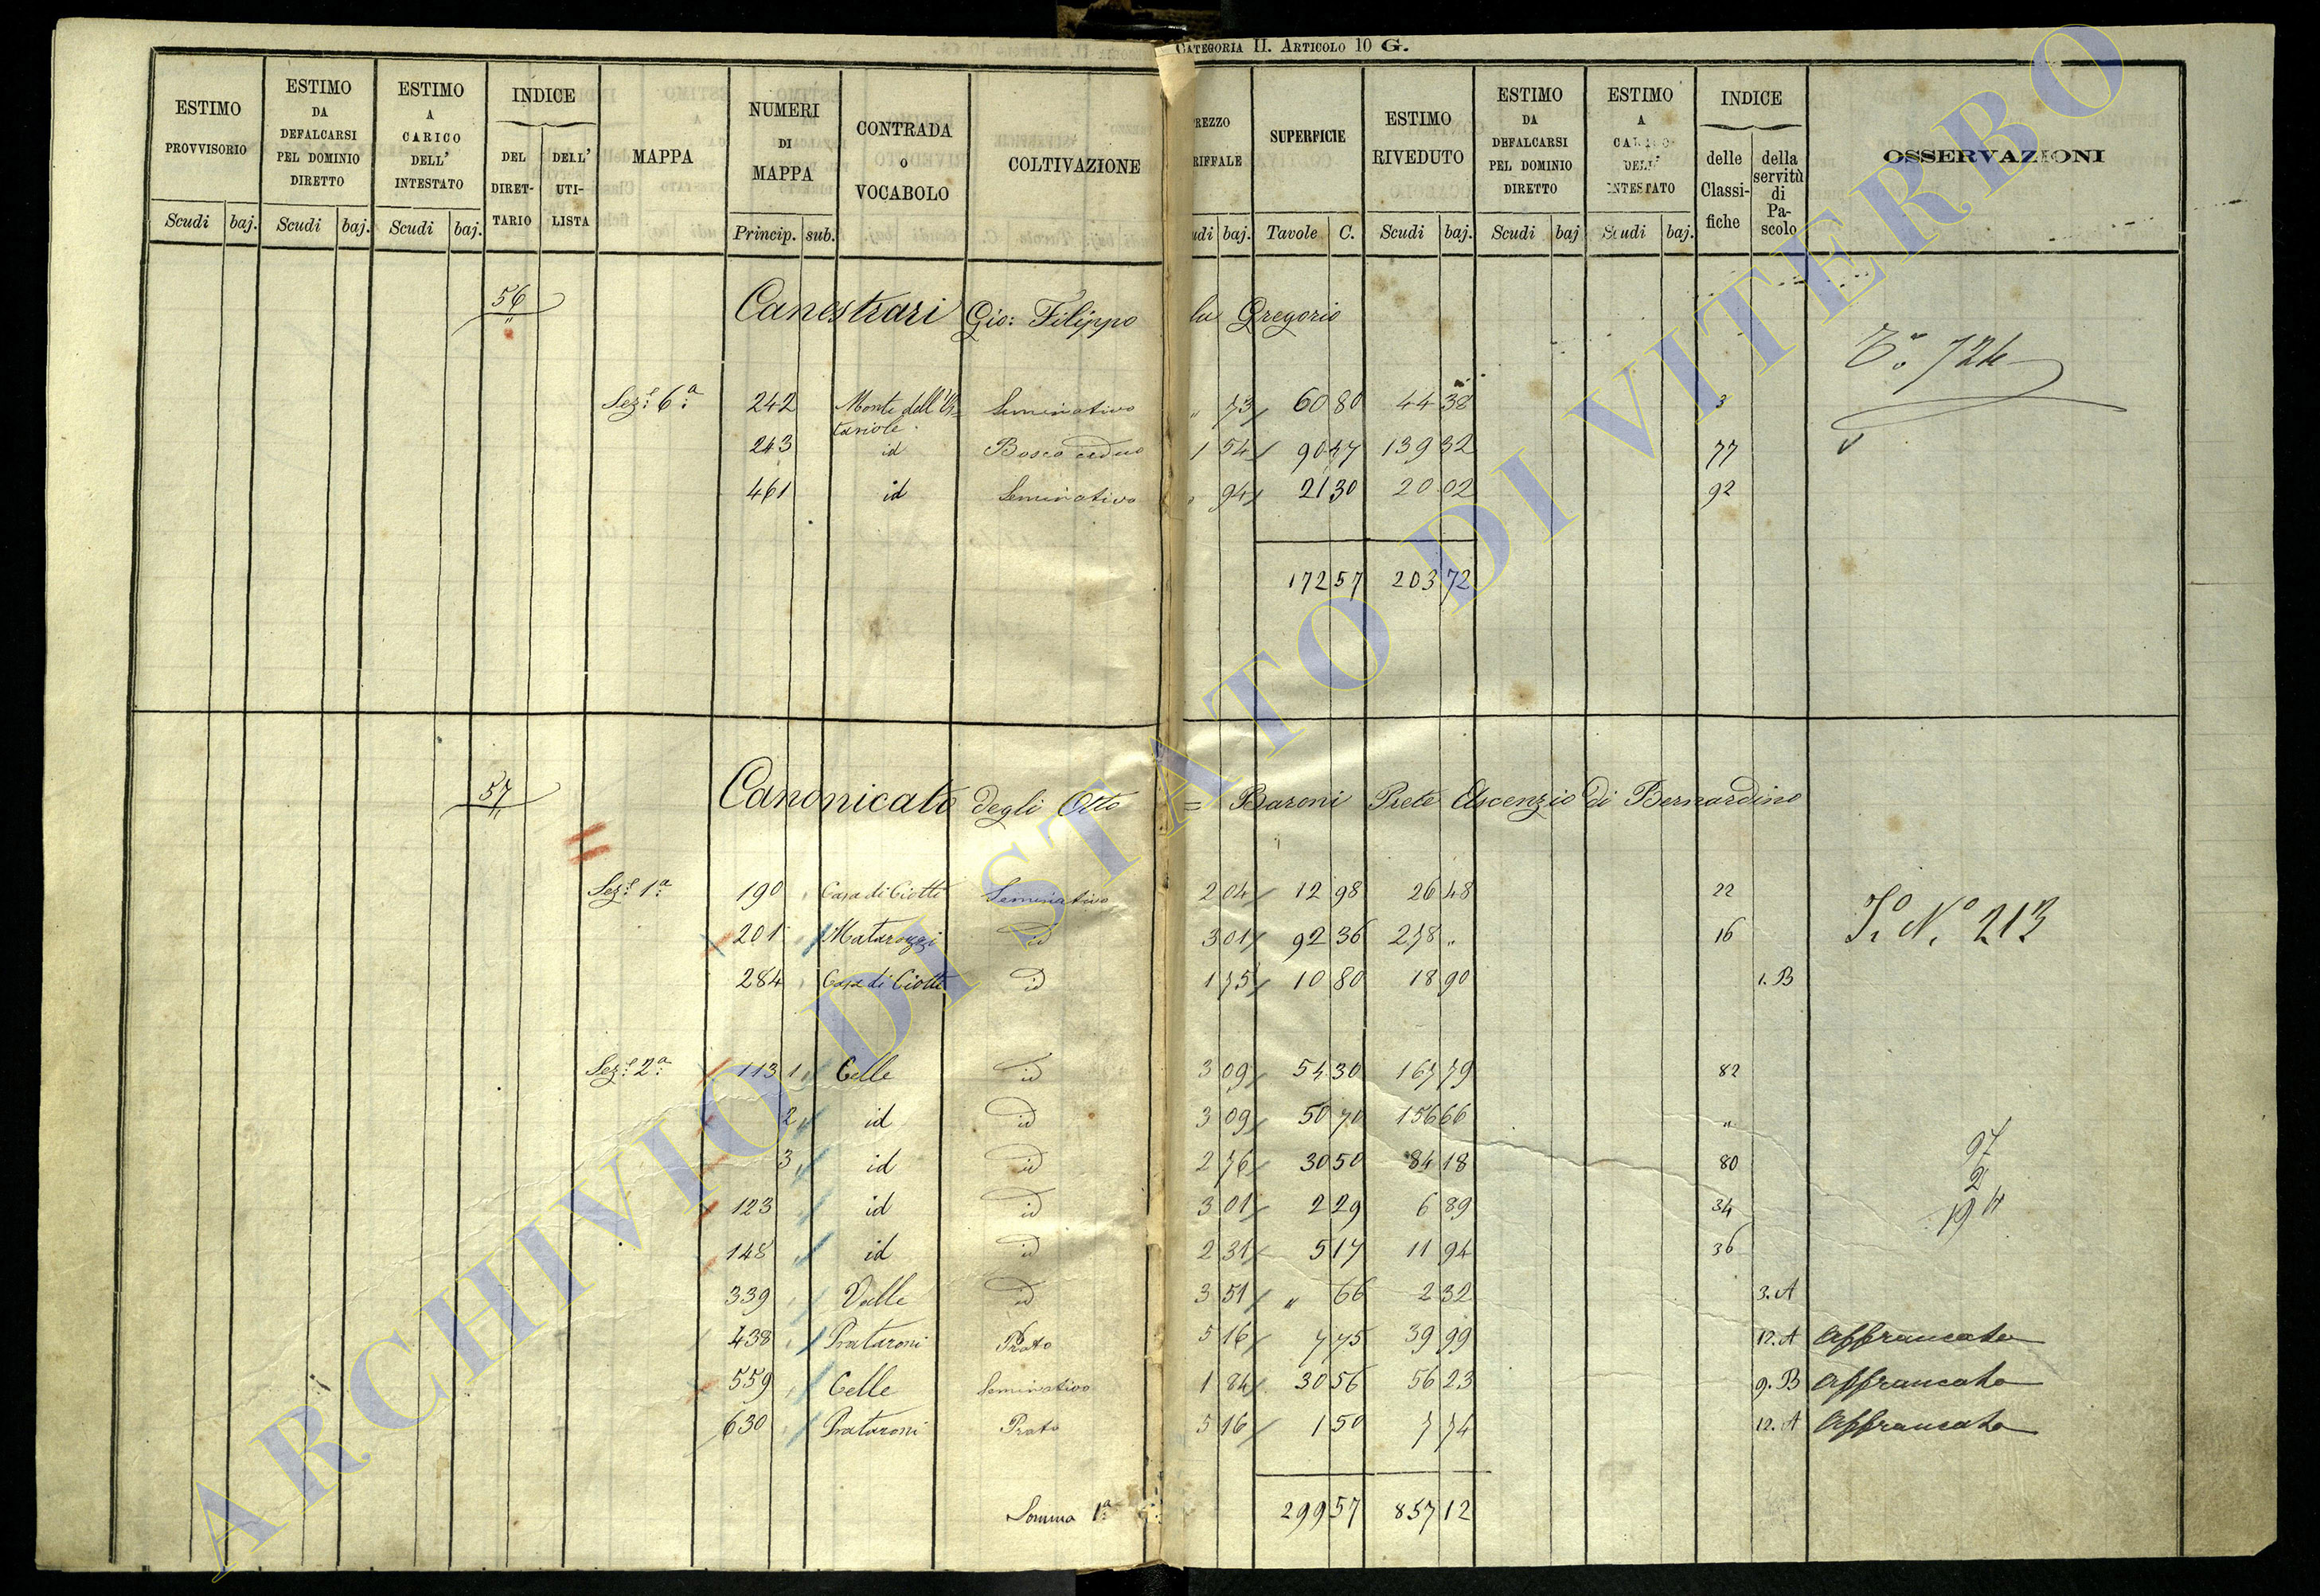 CATEGORIA II. ARTICOLO 10 G.
ESTIMO PROVVISORIO Scudi baj.
ESTIMO DA DEFALCARSI PEL DOMINIO DIRETTO Scudi baj.
ESTIMO A CARICO DELL' INTESTATO Scudi baj.
INDICE DEL DIRET-TARIO DELL' UTI-LISTA
MAPPA
NUMERI DI MAPPA Princip. sub.
CONTRADA O VOCABOLO
COLTIVAZIONE
REZZO RIFFALE udi baj.
SUPERFICIE Tavole C.
ESTIMO RIVEDUTO Scudi baj.
ESTIMO DA DEFALCARSI PEL DOMINIO DIRETTO Scudi baj
ESTIMO A CARICO DELL' INTESTATO Scudi baj.
INDICE delle Classi-fiche della servitù di Pa-scolo
OSSERVAZIONI
56 Canestrari Gio: Filippo Gregorio
Tº. 724
Sez.e 6.a 242 Monte dell' " 73 60 80 44 38 3
tariole Seminativo
243 id Bosco ceduo 1 54 90 47 139 32 77
461 id Seminativo " 94 21 30 20 02 92
172 57 203 72
57 Canonicato degli Otto = Baroni Prete Ascenzio di Bernardino
Sez.e 1.a 190 Casa di Ciotti Seminativo 2 04 12 98 26 48 22
201 Mataroggi id 3 01 92 36 278 " 16
Tº. Nº. 213
284 Casa di Ciotti id 1 75 10 80 18 90 1. B
Sez.e 2.a 113 1 Celle id 3 09 54 30 167 79 82
2 id id 3 09 50 70 156 66 "
3 id id 2 76 30 50 84 18 80
97
2
194
123 id id 3 01 2 29 6 89 34
148 id id 2 31 5 17 11 94 36
339 Valle id 3 51 " 66 2 32 3. A
438 Prataroni Prato 5 16 7 75 39 99 12. A Affrancato
559 Celle Seminativo 1 84 30 56 56 23 9. B Affrancato
630 Prataroni Prato 5 16 1 50 7 74 12. A Affrancato
Somma 1.a 299 57 857 12
ARCHIVIO DI STATO DI VITERBO